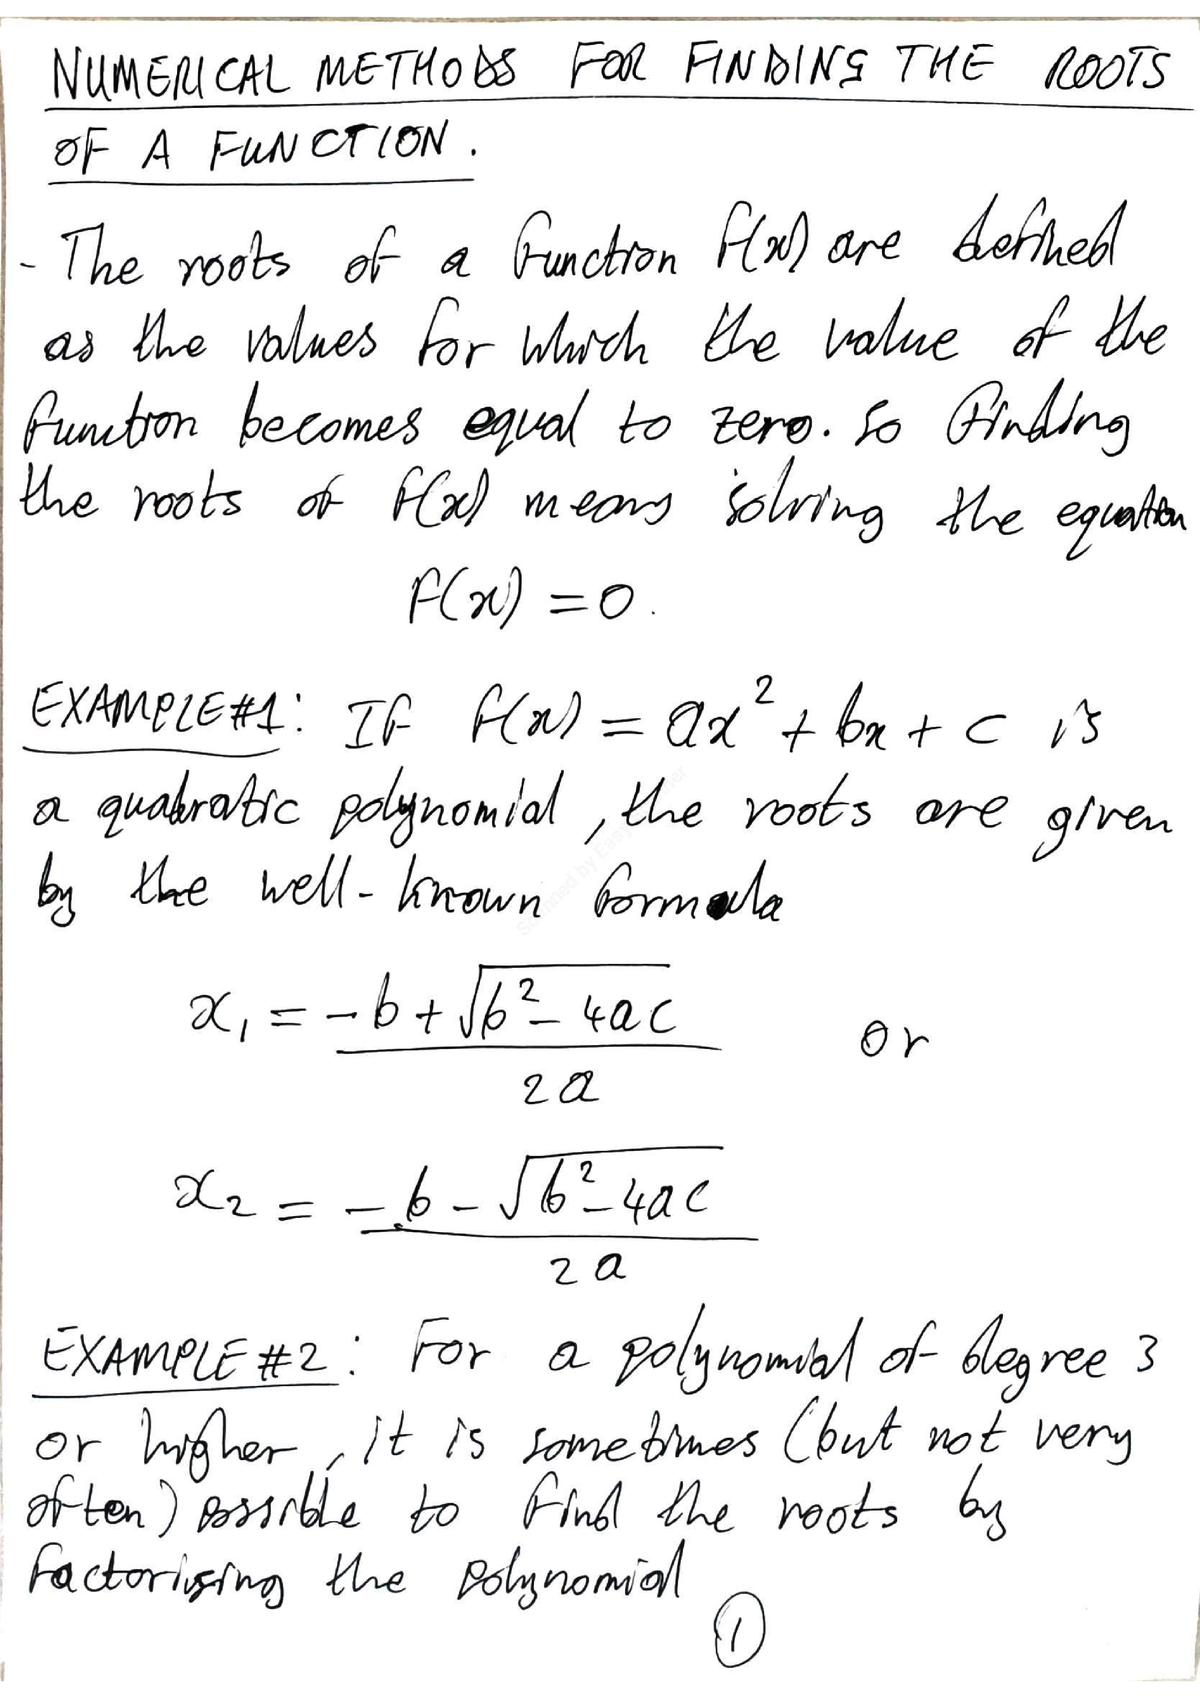 NUMERICAL METHODS FOR FINDING THE ROOTS
OF A FUNCTION.
- The roots of a function f(x) are defined
as the values for which the value of the
function becomes equal to zero. So finding
the roots of f(x) means solving the equation
f(x) = 0.
EXAMPLE #1: If f(x) = ax² + bx + c is
a quadratic polynomial, the roots are given
by the well-known formula
x₁ = -b + √b² - 4ac
2a
or
x₂ = -b - √b² - 4ac
2a
EXAMPLE #2: For a polynomial of degree 3
or higher, it is sometimes (but not very
often) possible to find the roots by
factorising the polynomial
1